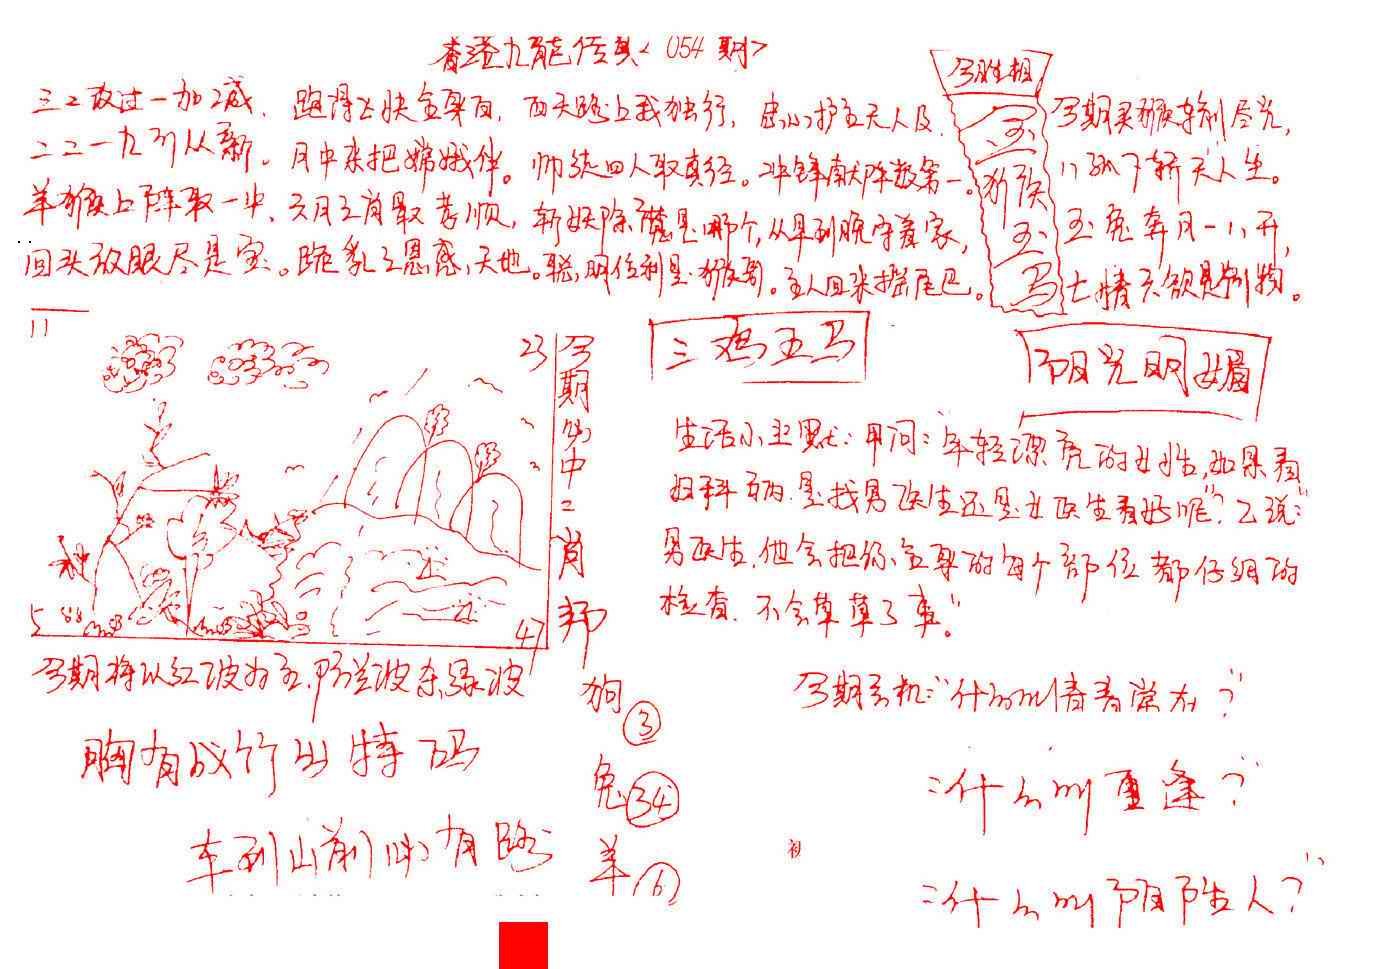 香港九龍传真<054期>
三二破过一加减，跑得飞快全身白，西天路上我独行，忠心护主无人及，
二二一九引从新。月中来把嫦娥伴。师徒四人取真经。冲锋献阵数第一。
羊猴上阵取一中，三月之肖最孝顺，斩妖除魔是哪个，从早到晚守着家，
回头放眼尽是宝。跪乳之恩感天地。聪明伶利是猴哥。主人回来摇尾巴。
今期生肖
玉
猴
玉
马
今期买猴
八
玉兔奔月一八开，
七情六欲是别物。
11
23
5
47
今期必中二肖
三鸡五马
阳光明媚
生活小幽默：甲问：年轻漂亮的女性，如果看
妇科病，是找男医生还是女医生看好呢"？乙说："
男医生，他会把你全身的每个部位都仔细的
检查，不会草草了事"。
今期将以红波为主，防兰波杀绿波
胸有成竹出特码
车到山前必有路
狗③
兔㉞
羊⑥
今期玄机："什么叫青春常在？"
："什么叫重逢？"
："什么叫阴阳人？"